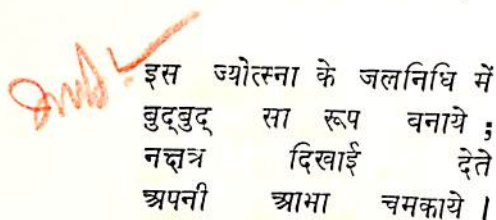 इस ज्योत्स्ना के जलनिधि में
बुद्‌बुद् सा रूप बनाये ;
नक्षत्र दिखाई देते
अपनी आभा चमकाये ।